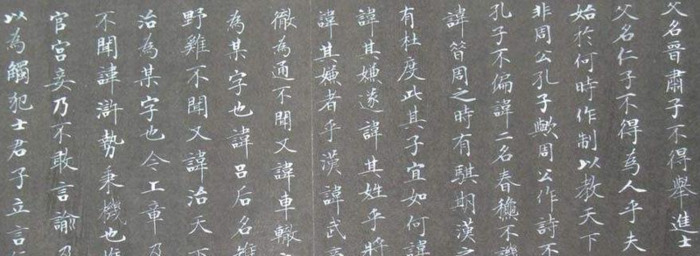 父名晉肅子不得舉進士
父名仁子不得為人乎夫
始於何時作制以教天下
非周公孔子歟周公作詩不
孔子不偏諱二名春穐不譏
諱周之時有騏期漢之
有杜度此其子宜如何諱
諱其嫌遂諱其姓乎將
諱其嫌者乎漢諱武
徹為通不聞又諱車轍
為某字也諱呂后名
野雞不聞又諱治天下
治為某字也今上章及
不聞諱滸勢秉機也
官宮妾乃不敢言諭及
以為觸犯士君子立言